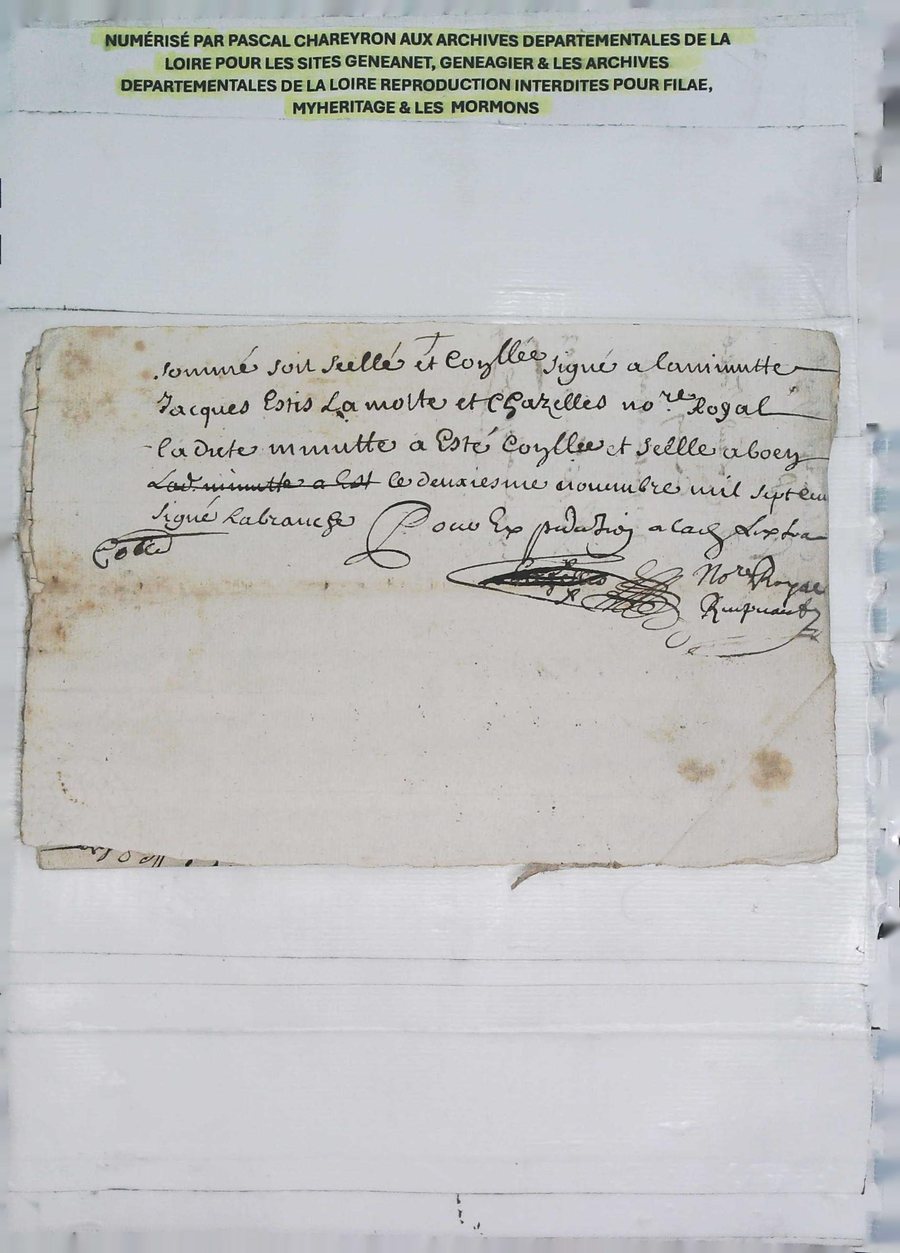 NUMÉRISÉ PAR PASCAL CHAREYRON AUX ARCHIVES DEPARTEMENTALES DE LA
LOIRE POUR LES SITES GENEANET, GENEAGIER & LES ARCHIVES
DEPARTEMENTALES DE LA LOIRE REPRODUCTION INTERDITES POUR FILAE,
MYHERITAGE & LES MORMONS
sommé soit scellé et signé a la minutte
Jacques Estis La motte et Chazelles no.re Royal
ladicte minutte a Esté et sellle a boen
Lad. minutte a Est le deuxiesme novembre mil sept
signé Labranche Pour Expedution
No.re Royal